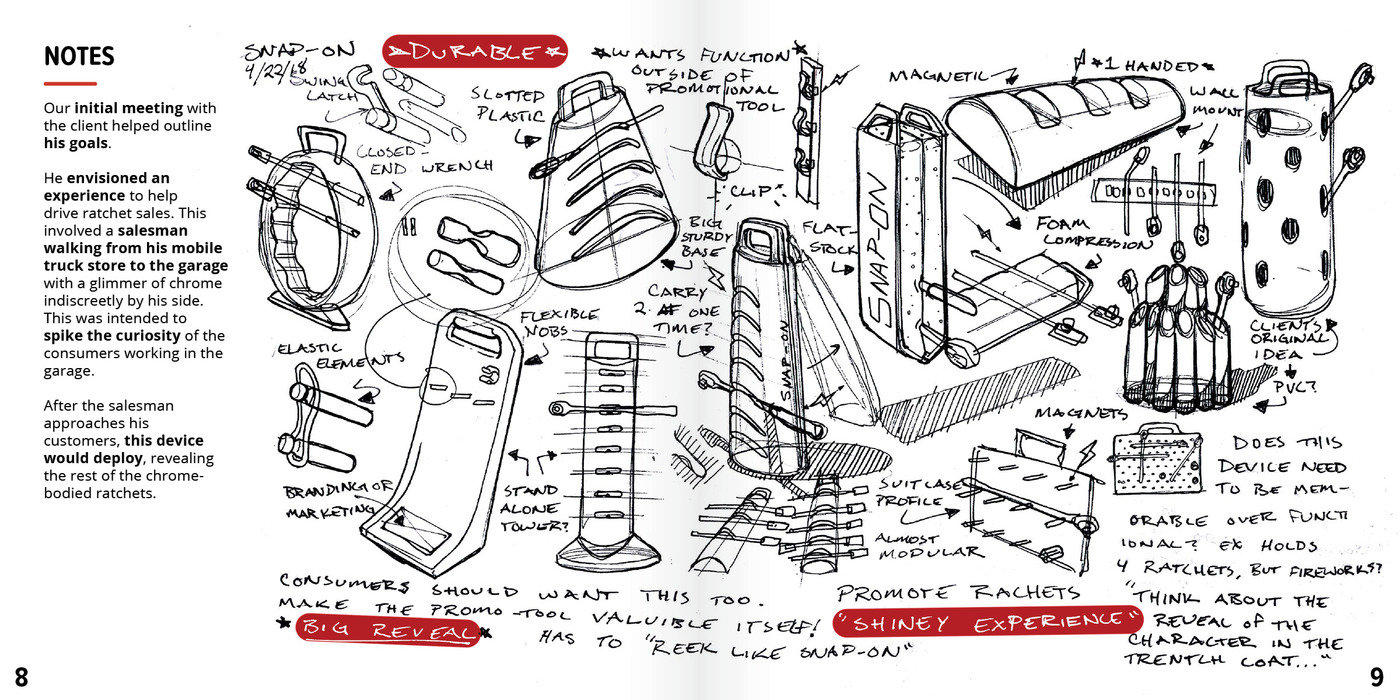 NOTES
Our initial meeting with
the client helped outline
his goals.
He envisioned an
experience to help
drive ratchet sales. This
involved a salesman
walking from his mobile
truck store to the garage
with a glimmer of chrome
indiscreetly by his side.
This was intended to
spike the curiosity of the
consumers working in the
garage.
After the salesman
approaches his
customers, this device
would deploy, revealing
the rest of the chrome-
bodied ratchets.
8
SNAP-ON
4/22/18
DURABLE
SWING
LATCH
CLOSED-
END WRENCH
SLOTTED
PLASTIC
WANTS FUNCTION
OUTSIDE OF
PROMOTIONAL
TOOL
"CLIP"
BIG
STURDY
BASE
CARRY
2 AT ONE
TIME?
FLEXIBLE
NOBS
ELASTIC
ELEMENTS
BRANDING OR
MARKETING
STAND
ALONE
TOWER?
SNAP-ON
CONSUMERS SHOULD WANT THIS TOO.
MAKE THE PROMO-TOOL VALUIBLE ITSELF!
BIG REVEAL
HAS TO "REEK LIKE SNAP-ON"
MAGNETIC
1 HANDED
WALL
MOUNT
FLAT-
STOCK
SNAP-ON
FOAM
COMPRESSION
CLIENTS
ORIGINAL
IDEA
PVC?
MAGNETS
SUITCASE
PROFILE
ALMOST
MODULAR
DOES THIS
DEVICE NEED
TO BE MEM-
ORABLE OVER FUNCTI
IONAL? EX HOLDS
4 RATCHETS, BUT FIREWORKS?
PROMOTE RACHETS
"SHINEY EXPERIENCE"
"THINK ABOUT THE
REVEAL OF THE
CHARACTER IN THE
TRENTCH COAT..."
9